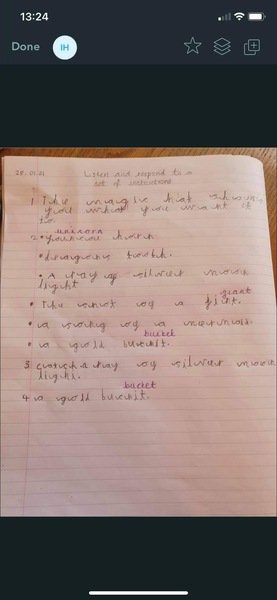 13:24
Done
IH
20.01.21 Listen and respond to a
set of instructions.
1 The magic hat shows
you what you want it
to.
unicorn
2. horn
dragons tooth.
A ray of silver moon
light
giant
The snot of a gint.
a song of a mermaid.
bucket
a gold buckit.
3 catch a ray of silver moon
light.
bucket
4 a gold buckit.